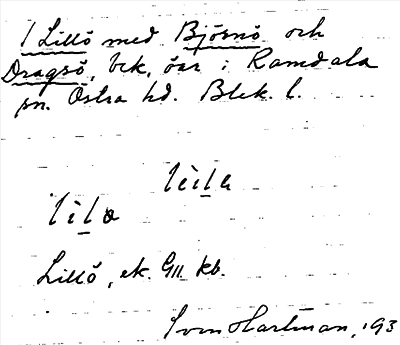 1 Lillö med Björnö och
Dragsö, bek. öar i Ramdala
sn. Östra hd. Blek. l.
lila
lila
Lillö, ek. GII kb.
Sven Hartman, 193